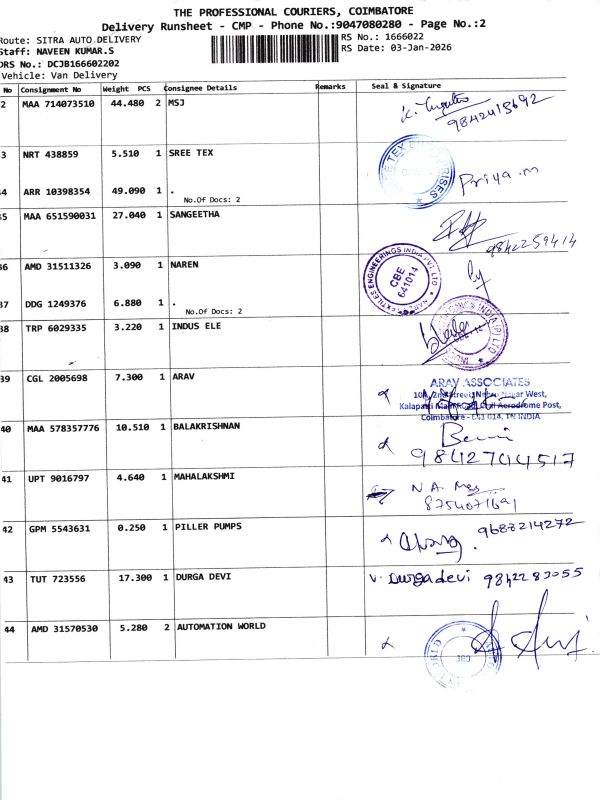 THE PROFESSIONAL COURIERS, COIMBATORE
Delivery Runsheet - CMP - Phone No.:9047080280 - Page No.:2
Route: SITRA AUTO DELIVERY
RS No.: 1666022
Staff: NAVEEN KUMAR.S
RS Date: 03-Jan-2026
DRS No.: DCJB166602202
Vehicle: Van Delivery
No Consignment No Weight PCS Consignee Details Remarks Seal & Signature
2 MAA 714073510 44.480 2 MSJ
9842413692
3 NRT 438859 5.510 1 SREE TEX
34 ARR 10398354 49.090 1 .
Priya.m
No.Of Docs: 2
35 MAA 651590031 27.040 1 SANGEETHA
9842259414
36 AMD 31511326 3.090 1 NAREN
TEXTILES ENGINEERINGS INDIA PVT LTD
CBE
641014
37 DDG 1249376 6.880 1 .
No.Of Docs: 2
38 TRP 6029335 3.220 1 INDUS ELE
39 CGL 2005698 7.300 1 ARAV
ARAV ASSOCIATES
10A, 2nd Street, Nehru Nagar West,
Kalapatti Main Road, Civil Aerodrome Post,
Coimbatore - 641 014, TN INDIA
40 MAA 578357776 10.510 1 BALAKRISHNAN
9842704517
41 UPT 9016797 4.640 1 MAHALAKSHMI
N.A.
8754071691
42 GPM 5543631 0.250 1 PILLER PUMPS
9688214272
43 TUT 723556 17.300 1 DURGA DEVI
V. Durgadevi 9842283055
44 AMD 31570530 5.280 2 AUTOMATION WORLD